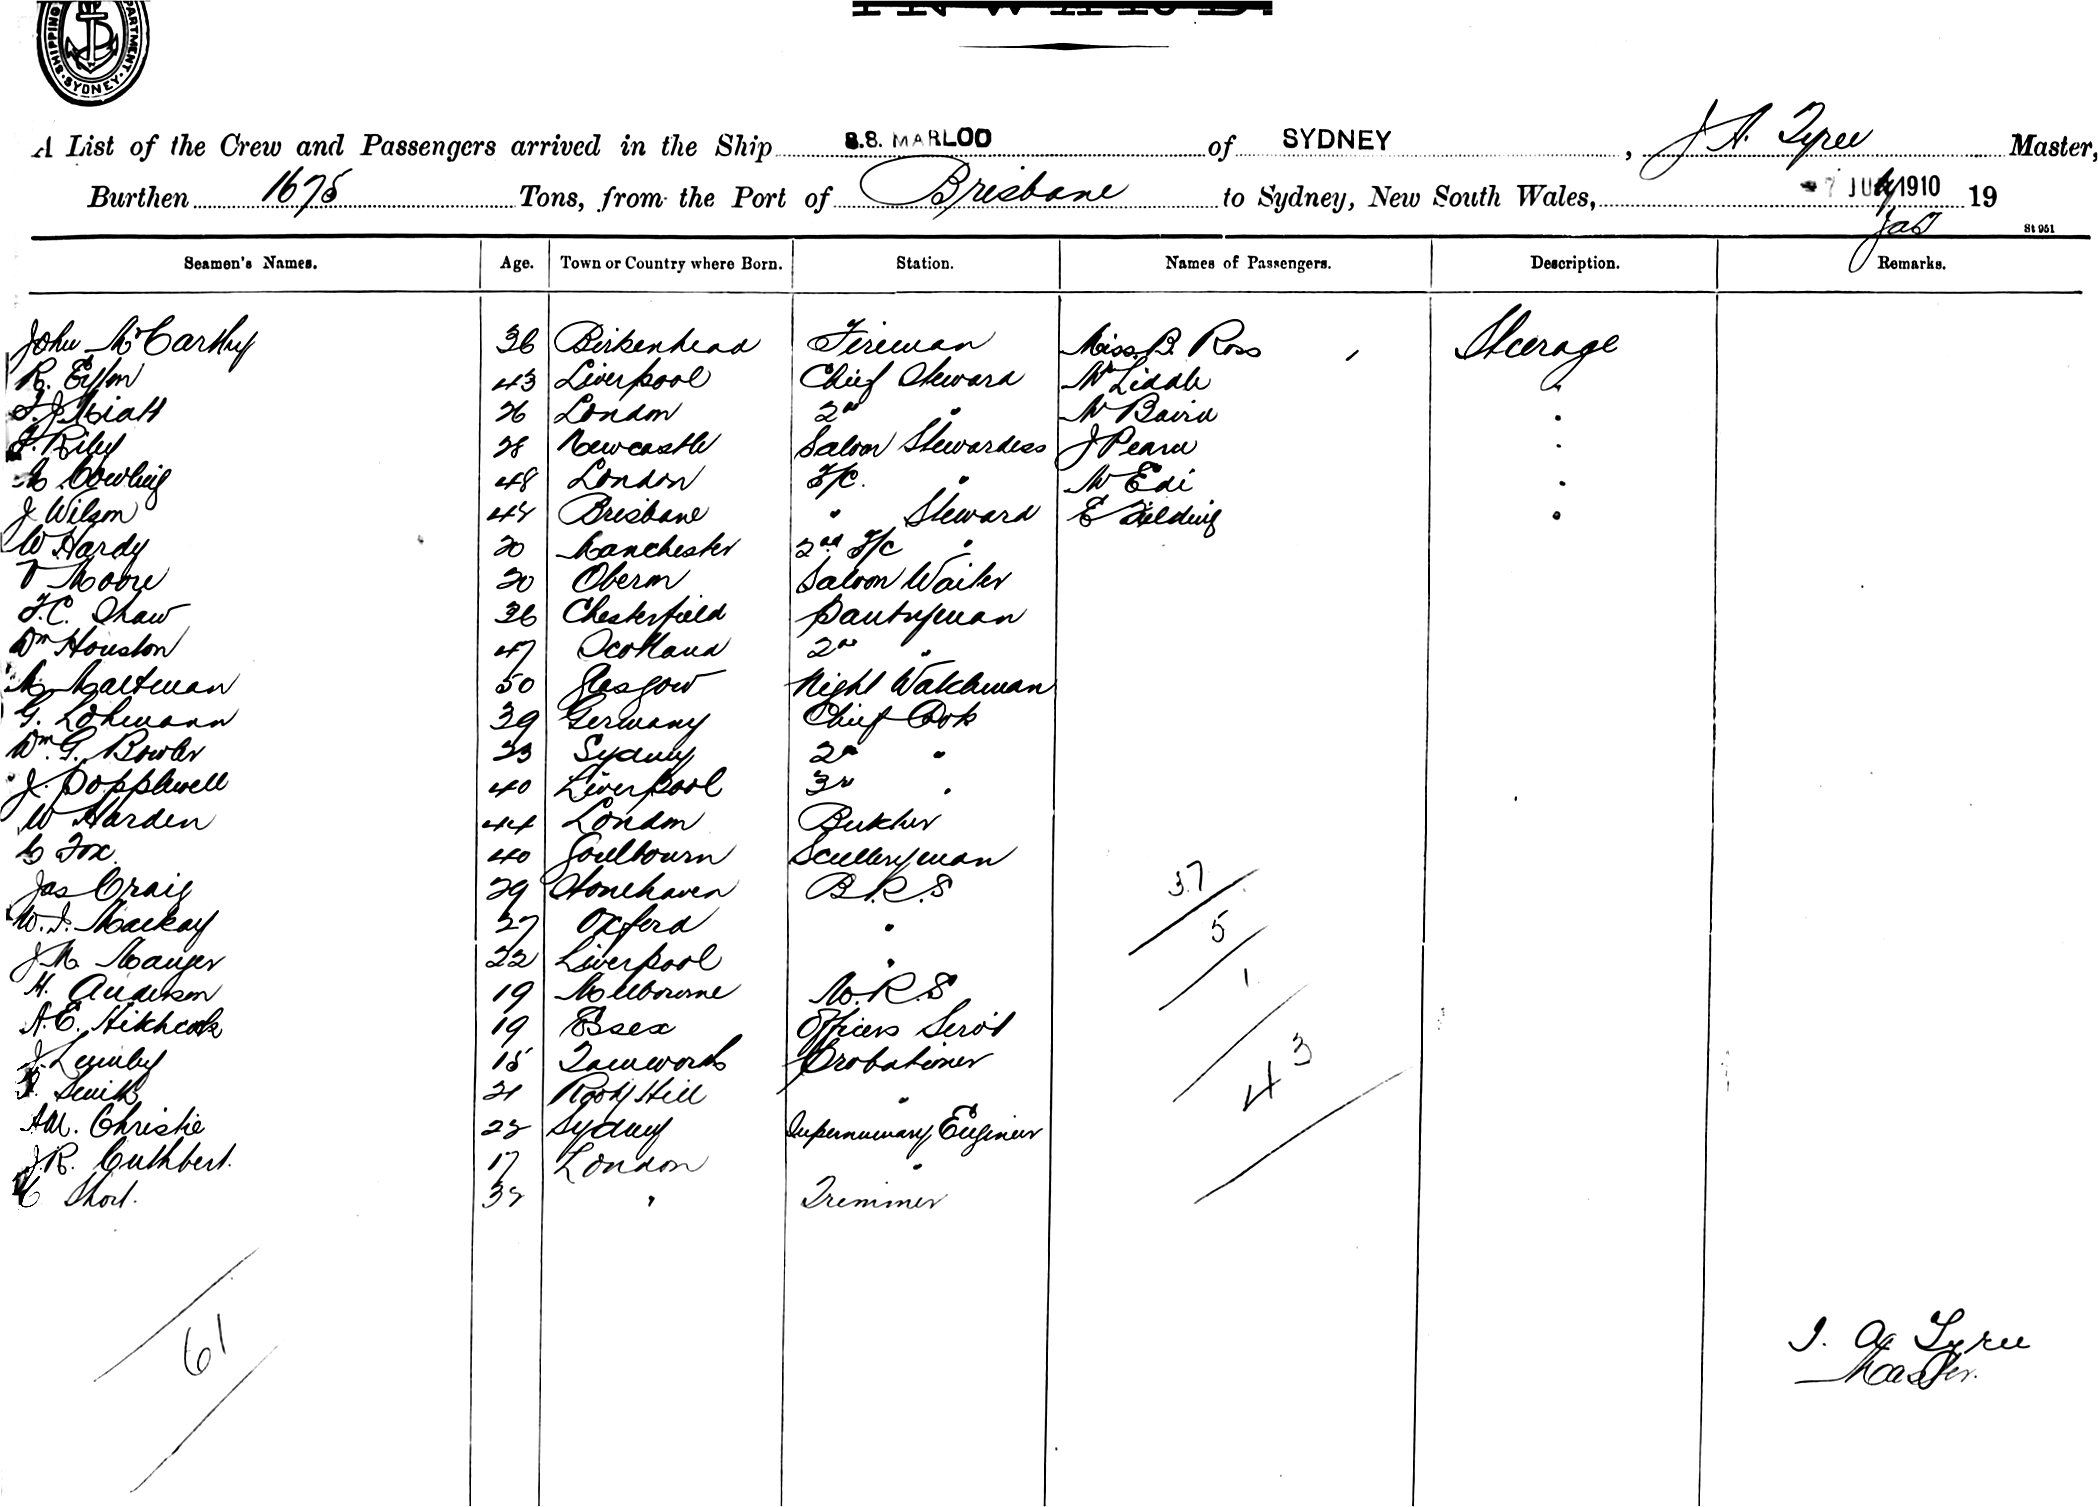 SHIPPING DEPARTMENT SYDNEY
INWARD
A List of the Crew and Passengers arrived in the Ship S.S. MARLOO of SYDNEY, J A. Tyree Master,
Burthen 1675 Tons, from the Port of Brisbane to Sydney, New South Wales, 7 JUL 1910 19
St 951
Seamen's Names. Age. Town or Country where Born. Station. Names of Passengers. Description. Remarks.
John McCarthy 36 Birkenhead Fireman Miss. B. Ross Steerage
R. 43 Liverpool Chief Steward Mr Liddle "
26 London 2nd " Mr Baird "
Riley 28 Newcastle Saloon Stewardess J Pearn "
Cowling 48 London F/C. " Mr Edi "
J Wilson Brisbane " Steward E Fielding "
W Hardy 20 Manchester 2nd F/C "
Moore 20 Oberon Saloon Waiter
F. C. Shaw 36 Chesterfield Pantryman
Wm Houston 47 Scotland 2nd "
Maltman 50 Glasgow Night Watchman
G. Lohmann 39 Germany Chief Cook
Wm. G. Bowler 23 Sydney 2nd "
J. Popplewell 40 Liverpool 3rd "
W Harden 44 London Butcher
C Fox 40 Goulbourn Sculleryman
Jas Craig 29 Stonehaven B. R. S 37
W. J. Mackay 27 Oxford " 5
J M. Mauger 22 Liverpool " 1
H. Anderson 19 Melbourne M. R. S
A. E. Hitchcock 19 Essex Officers Serv't
J. Lumby 15 Tamworth Probationer 43
Smith 21 Rooty Hill "
AM. Christie 22 Sydney Supernumary Engineer
J. R. Cuthbert. 17 London "
C Short. 32 " Trimmer
61
J. A Tyree
Master.